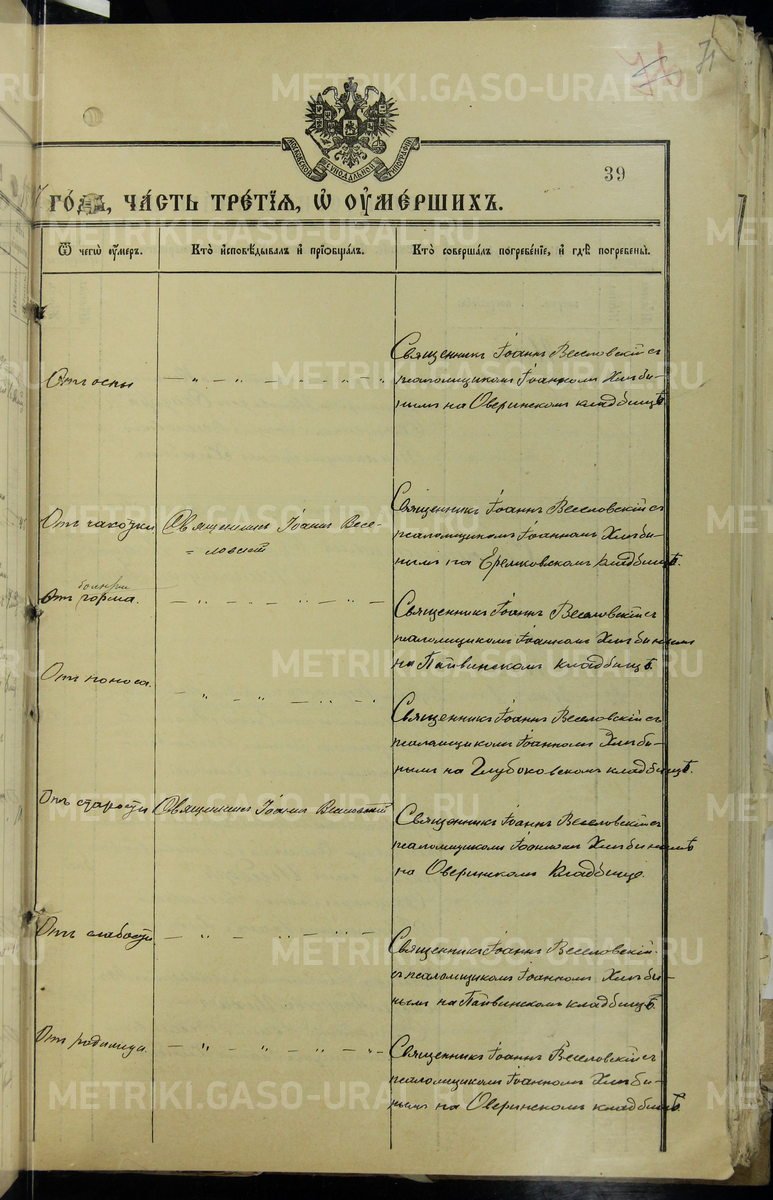 71
МОСКОВСКОЙ СѴНОДАЛЬНОЙ ТИПОГРАФІИ
39
7 го́да, ча́сть тре́тїѧ, ѡ҆ ᲂу҆ме́ршихъ.
Ѿ чегѡ̀ ᲂу҆́мер.
Кто̀ и҆сповѣ́дывалъ и҆ прїѡбща́лъ.
Кто̀ соверша́лъ погребе́нїе, и҆ гдѣ̀ погребены̀.
Отъ оспы
Священникъ Іоаннъ Веселовскій съ
псаломщикомъ Іоанномъ Хлѣби-
нымъ на Оверинскомъ кладбищѣ.
Отъ чахотки
Священникъ Іоаннъ Весе-
ловскій
Священникъ Іоаннъ Веселовскій съ
псаломщикомъ Іоанномъ Хлѣби-
нымъ на Еремковскомъ кладбищѣ.
Отъ горла.
Священникъ Іоаннъ Веселовскій съ
псаломщикомъ Іоанномъ Хлѣбинымъ
на Пайвинскомъ кладбищѣ.
Отъ поноса.
Священникъ Іоаннъ Веселовскій съ
псаломщикомъ Іоанномъ Хлѣби-
нымъ на Глубоковскомъ кладбищѣ.
Отъ старости
Священникъ Іоаннъ Веселовскій
Священникъ Іоаннъ Веселовскій съ
псаломщикомъ Іоанномъ Хлѣбинымъ
на Оверинскомъ кладбище.
Отъ слабости.
Священникъ Іоаннъ Веселовскій
съ псаломщикомъ Іоанномъ Хлѣби-
нымъ на Пайвинскомъ кладбищѣ.
Отъ родимца.
Священникъ Іоаннъ Веселовскій съ
псаломщикомъ Іоанномъ Хлѣби-
нымъ на Оверинскомъ кладбищѣ.
METRIKI.GASO-URAL.RU